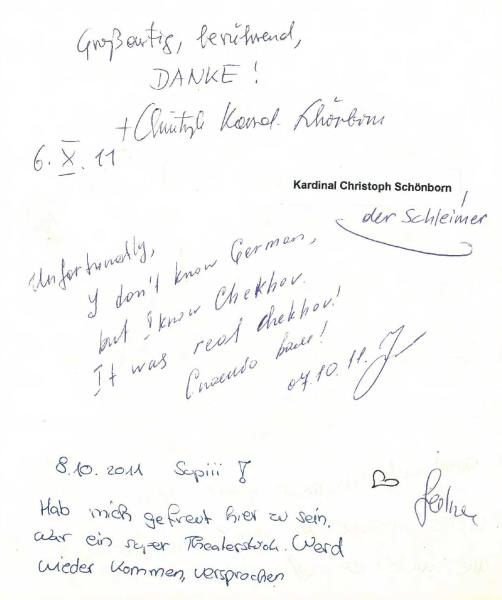 Großartig, berührend,
DANKE!
+ Christoph Kard. Schönborn
6. X. 11
Kardinal Christoph Schönborn
der Schleimer
Unfortunatly,
I don't know German,
but I know Chekhov.
It was real Chekhov!
Спасибо вам!
07.10.11.
8.10.2011 Supiii!
Hab mich gefreut hier zu sein,
war ein super Theaterstück. Werd
wieder kommen, versprochen